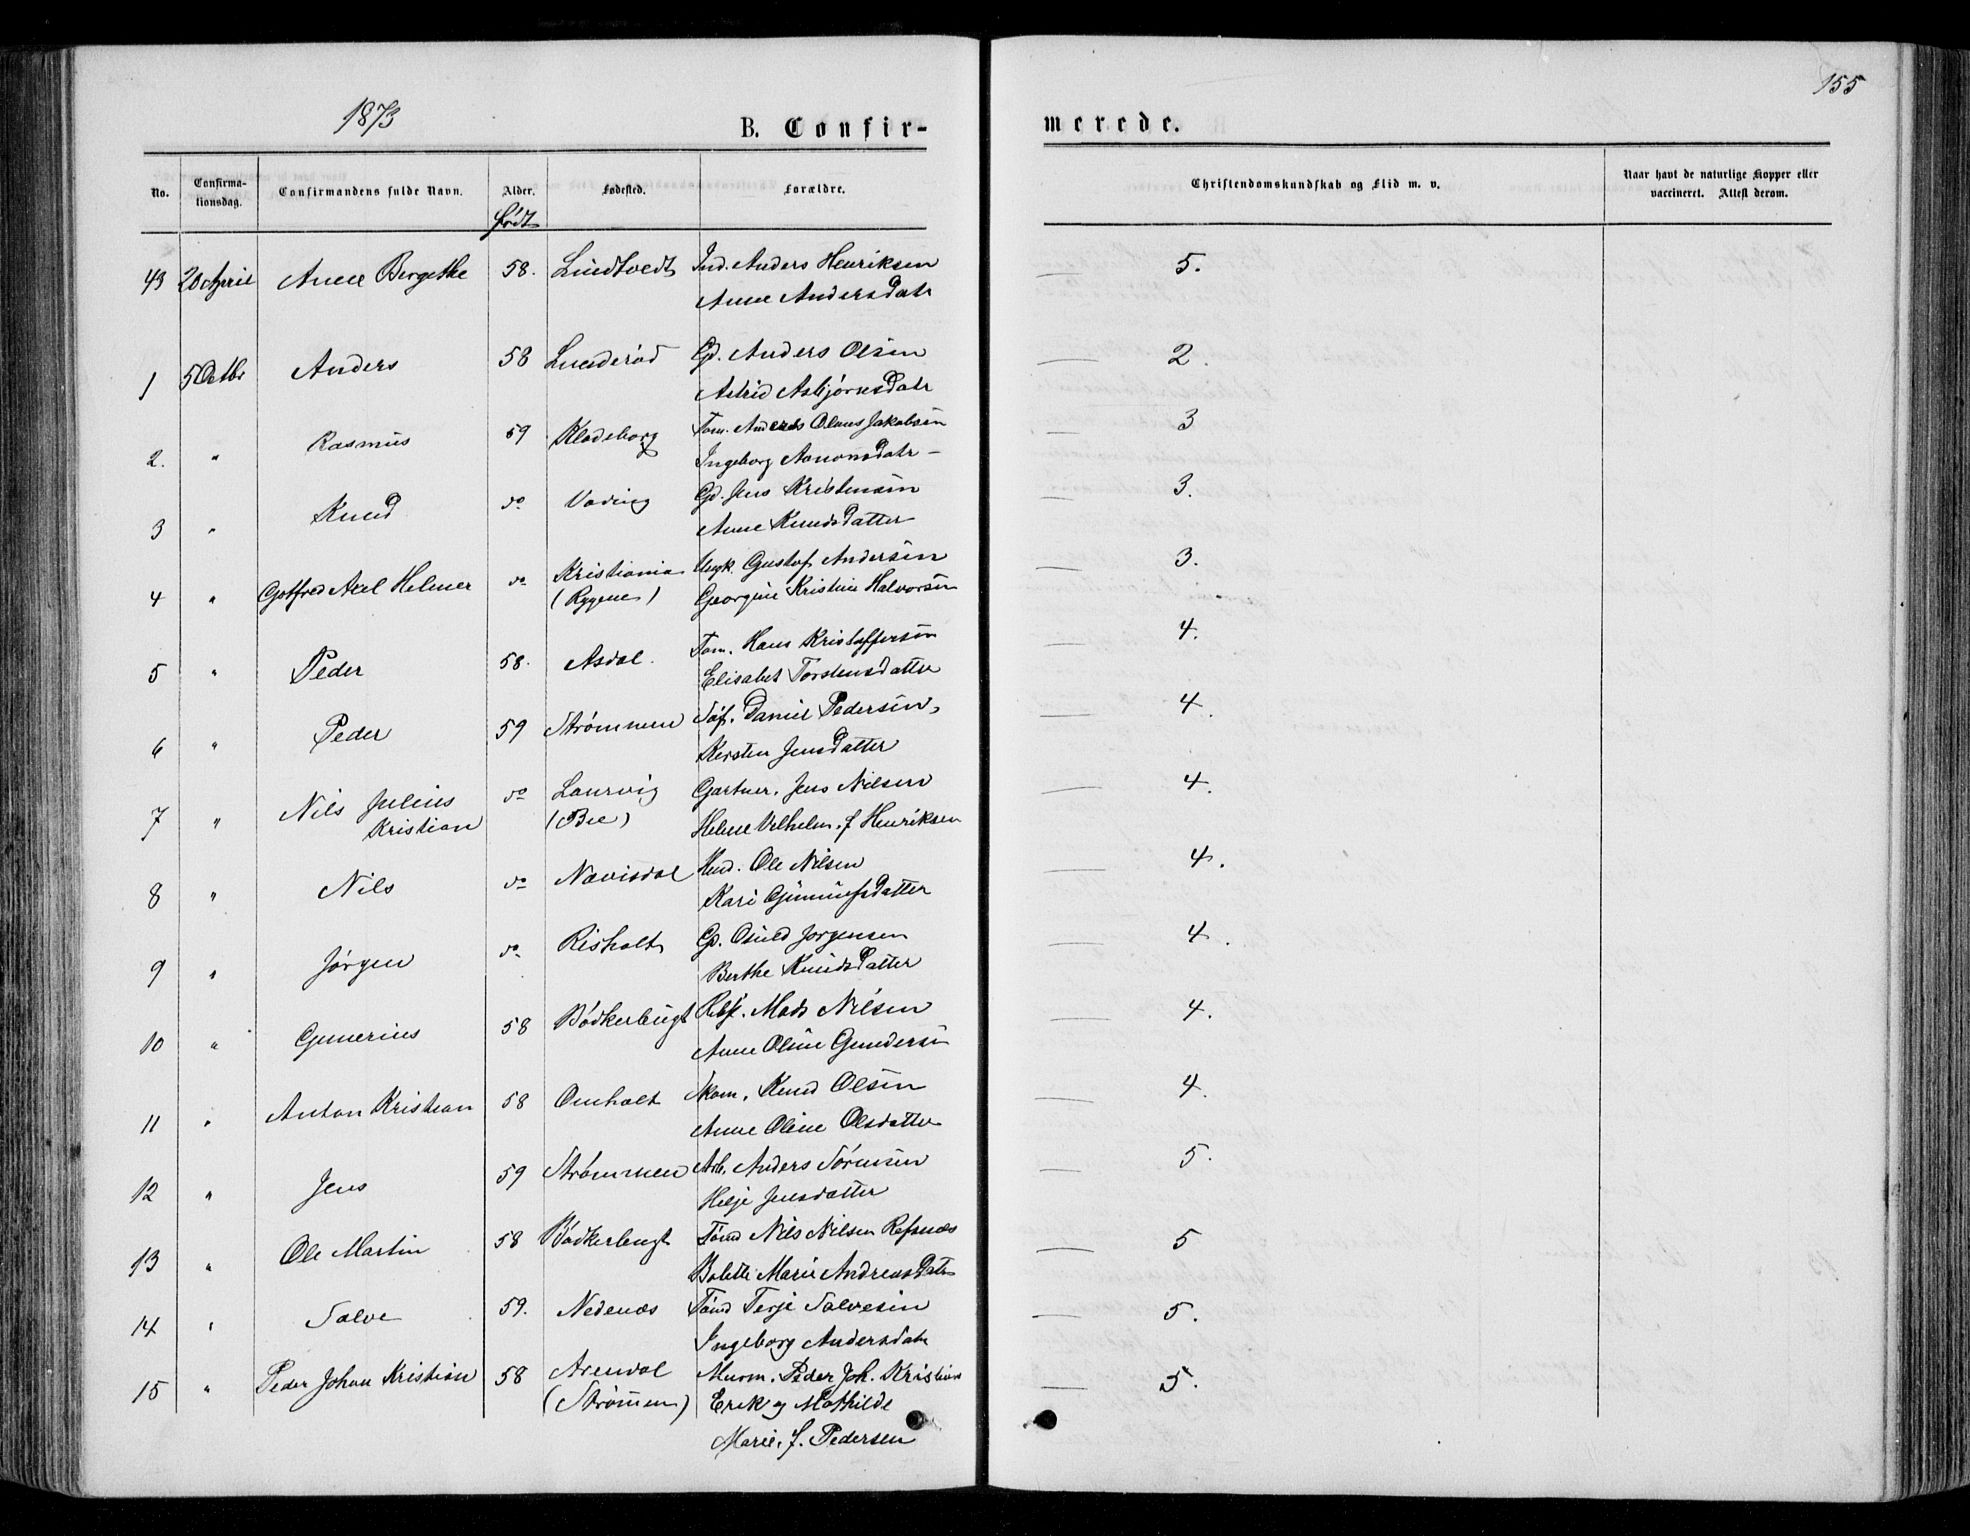 1873
155
B. Confir-
merede.
No. Confirma-tionsdag. Confirmandens fulde Navn. Alder. Fødested. Forældre. Christendomskundskab og Flid m. v. Naar havt de naturlige Kopper eller vaccineret. Attest derom.
født
43 20 April Anne Bergethe 58. Lindtvedt Ind. Anders Henriksen — 5.
Anne Andersdatr
1 5 Octbr Anders 58 Lunderød Gd. Anders Olsen — 2.
Astrid Asbjørnsdatr
2. " Rasmus 59 Klodeborg Tøm. Anders Olaus Jakobsen — 3
Ingeborg Aanonsdatr
3 " Knud do Voding Gd. Jens Kristensen — 3.
Anne Knudsdatter
4 " Gotfred Axel Helmer do Kristiania Gustaf Andersen — 3.
(Rygene) Georgine Kristine Halvorsen
5 " Peder 58. Asdal. Tøm. Hans Kristoffersen — 4.
Elisabet Torstensdatter
6 " Peder 59 Strømmen Søf. Daniel Pedersen, — 4.
Kirsten Jensdatter
7 " Nils Julius do Laurvig Gartner. Jens Nilsen — 4.
Kristian (Bie) Helene Vilhelm. f Henriksen
8 " Nils do Nævisdal Hmd. Ole Nilsen — 4.
Kari Gunnufsdatter
9 " Jørgen do Risholt Gd. Osuld Jørgensen — 4.
Berthe Knudsdatter
10 " Gunerius 58 Bødkerbugt Rebsl. Mads Nilsen — 4.
Anne Oline Gundersen
11 " Anton Kristian 58 Omholt Skom. Knud Olsen — 4.
Anne Oline Olsdatter
12 " Jens 59 Strømmen Arb. Anders Sørensen — 5.
Helje Jensdatter
13 " Ole Martin 58 Bødkerbugt Tømd Nils Nilsen Refsnæs — 5
Bolette Marie Andreasdatr
14 " Salve 59. Nedenæs Tømd Terje Salvesen — 5.
Ingeborg Andersdatr
15 " Peder Johan Kristian 58 Arendal Murm. Peder Joh. Kristian — 5.
(Strømmen) Erik og Mathilde
Marie, f. Pedersen